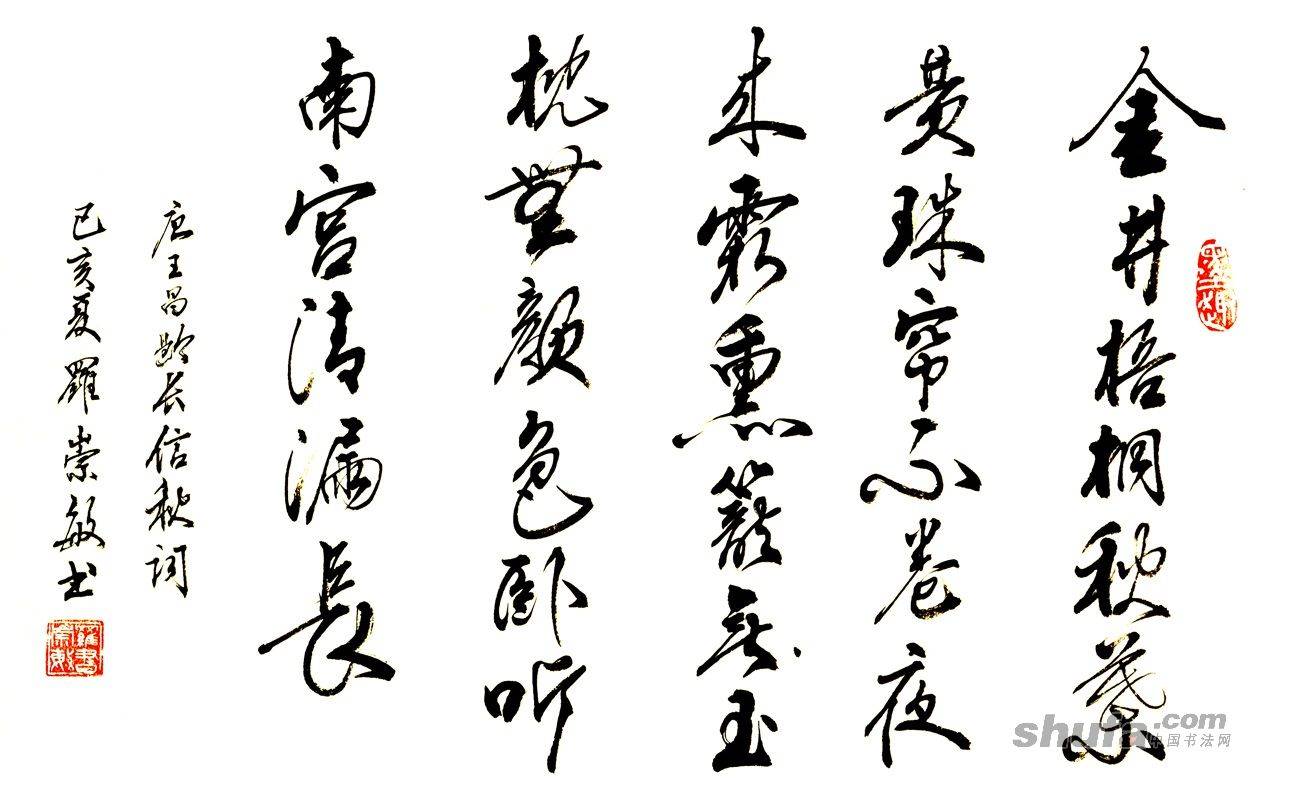 金井梧桐秋葉
黄珠帘不卷夜
来霜熏籠無玉
枕無顔色卧听
南宫清漏長
唐王昌齡长信秋词
己亥夏羅崇敏书
shufa.com
中国书法网